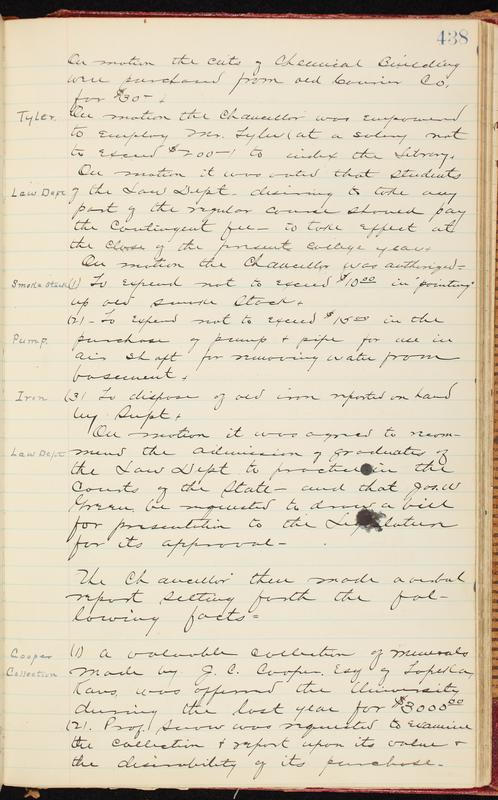 438
On motion the cuts of Chemical Building
were purchased from old Courier Co.
for $30-
Tyler. On motion the Chancellor was empowered
to employ Mr. Tyler (at a salary not
to exceed $200-) to index the Library.
On motion it was voted that students
Law Dept of the Law Dept. desiring to take any
part of the regular course should pay
the Contingent fee- to take effect at
the close of the present College year.
On motion the Chancellor was authorized=
Smoke Stack (1) To expend not to exceed $10.00 in "pointing"
up old smoke Stack.
(2)- To expend not to exceed $15.00 in the
Pump. purchase of pump & pipe for use in
air shaft for removing water from
basement.
Iron (3) To dispose of old iron reported on hand
by Supt.
On motion it was agreed to recom-
Law Dept mend the admission of graduates of
the Law Dept to practice in the
Courts of the State- and that Jas. W
Green be requested to draw a bill
for presentation to the Legislature
for its approval-
The Chancellor then made a verbal
report setting forth the fol-
lowing facts=
Cooper (1) a valuable collection of minerals
Collection made by J. C. Cooper, Esq of Topeka,
Kans. was offered the University
during the last year for $3000.00
(2). Prof. Snow was requested to examine
the collection & report upon its value &
the desirability of its purchase.